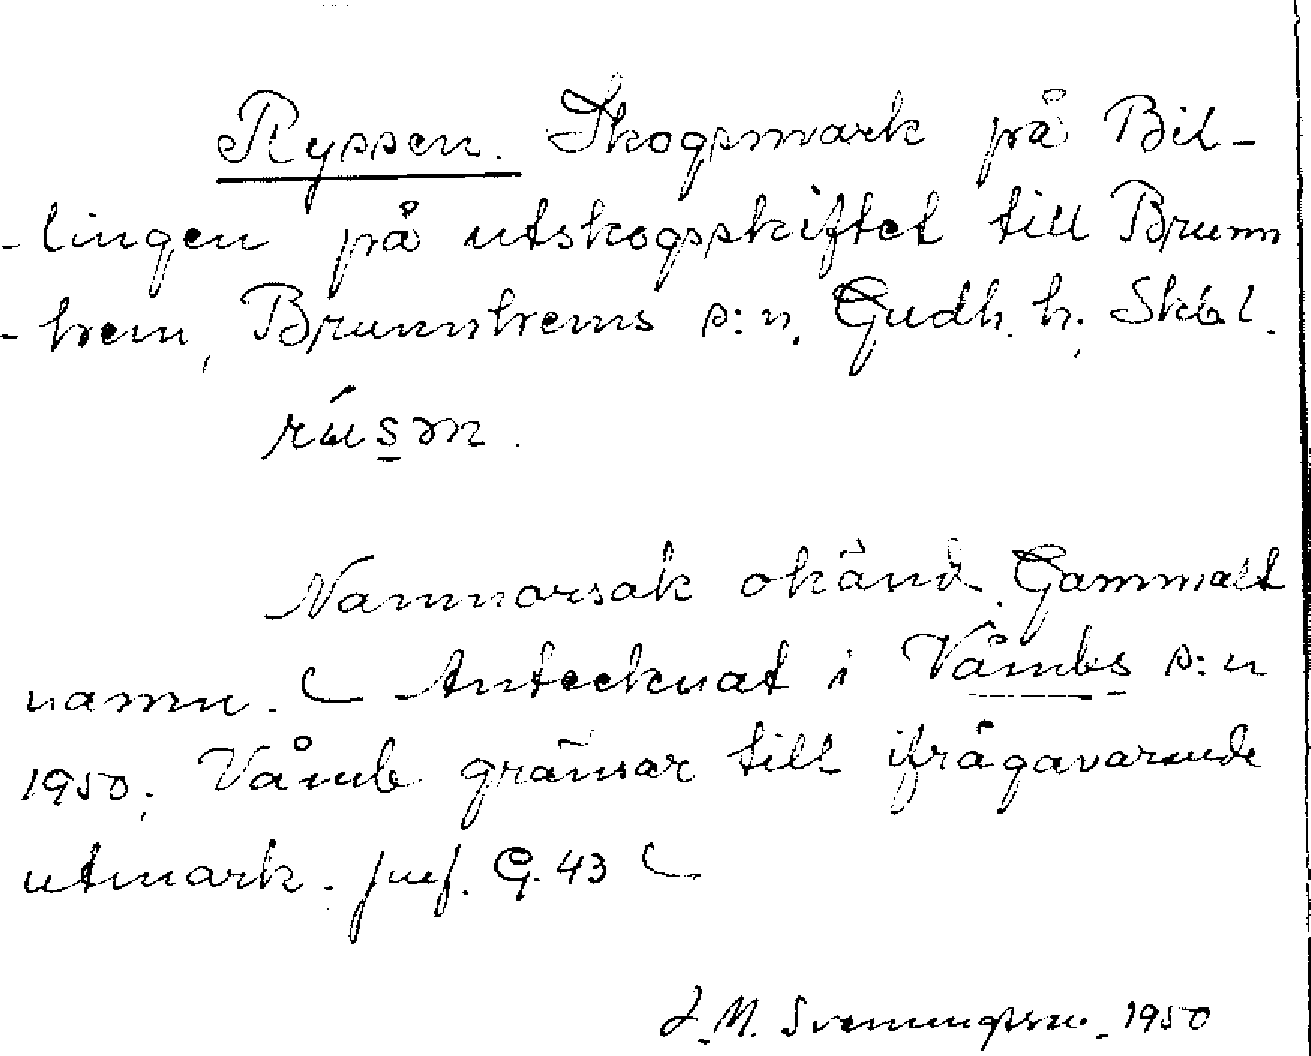 Ryssen. Skogsmark på Bil-
-lingen på utskogsskiftet till Brunn
-hem, Brunnhems s:n, Gudh. h. Skbl.
rúsən.
Namnorsak okänd. Gammalt
namn. Antecknat i Våmbs s:n
1950. Våmb gränsar till ifrågavarande
utmark. G. 43
J. M. Svenungsson. 1950